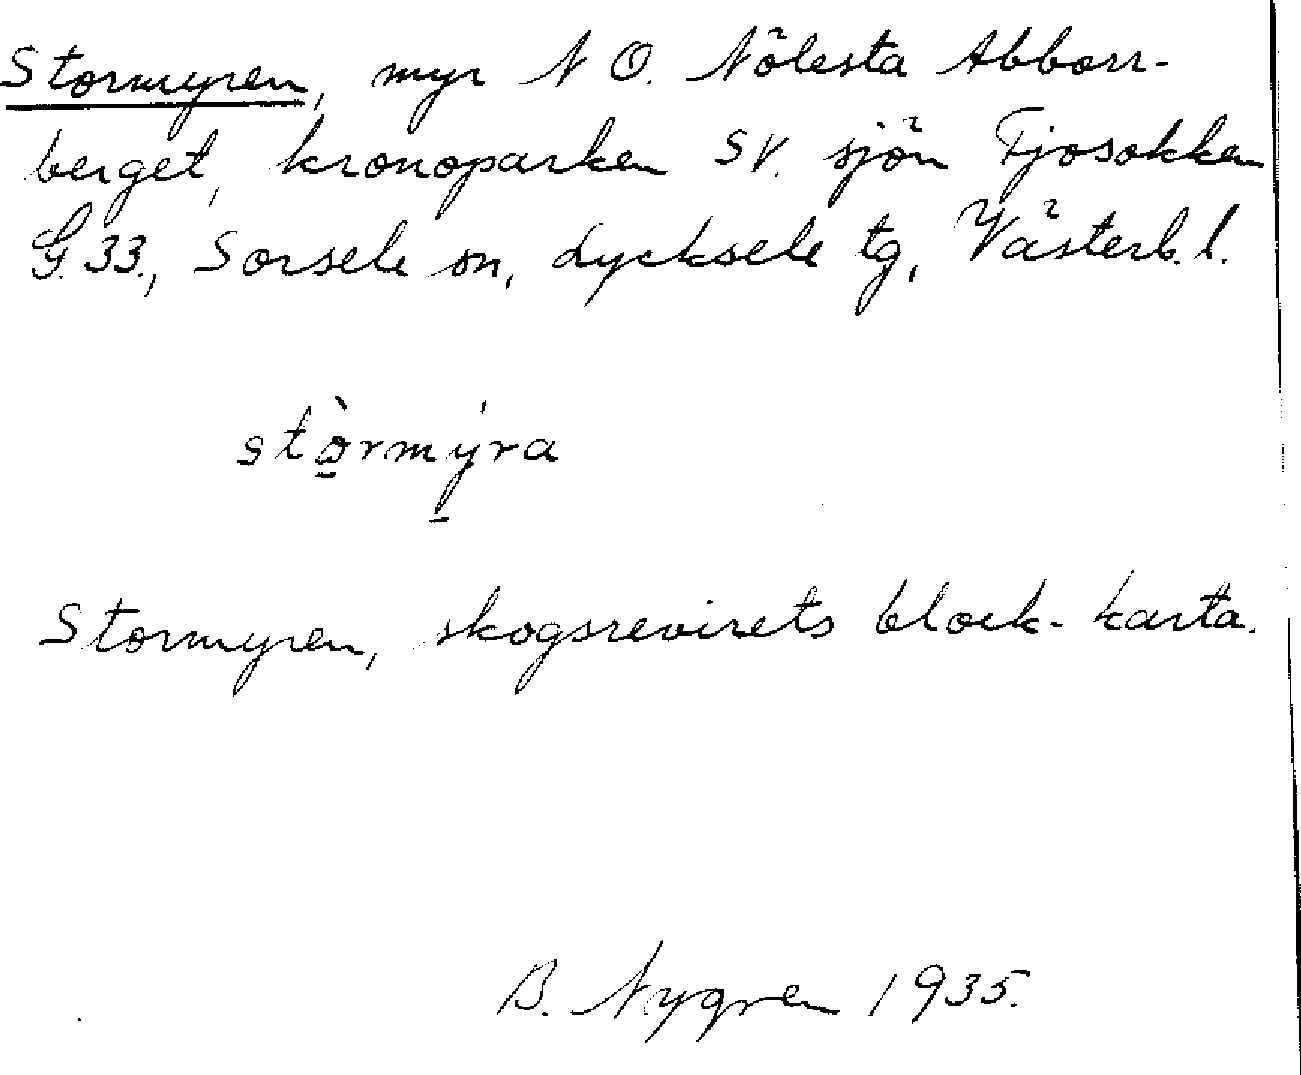 Stormyren, myr N O. Nölesta Abborr-
berget, kronoparken SV. sjön Tjosokken
G. 33., Sorsele sn, Lycksele tg, Västerb. l.
stòrmýra
Stormyren, skogsrevirets block-karta.
B. Nygren 1935.